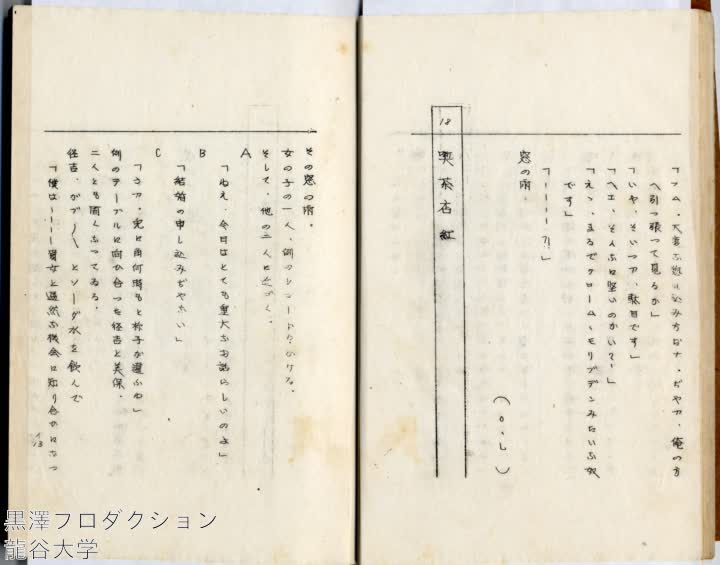 「フム、大変な惚れ込み方だナ、ぢやア、俺の方
へ引つ張つて見るか」
「いや、そいつア、駄目です」
「ヘエ、そんなに堅いのかい?」
「えゝ、まるでクローム、モリブデンみたいな奴
です」
「ーーーー?!」
窓の雨。
(O・L)
18 喫茶店 紅
その窓の雨。
女の子の一人、例のレコードをかける。
そして、他の二人に近づく。
A
「ねえ、今日はとても重大なお話らしいのよ」
B
「結婚の申し込みぢやない」
C
「さア、兎に角何時もと様子が違ふわ」
例のテーブルに向か合つた 吉と美保。
二人とも固くなつてゐる。
吉、ガブ〱とソーダ水を飲んで
「僕はーーー男女と 然な機会に知り合 になつ
13
黒澤プロダクション
龍谷大学